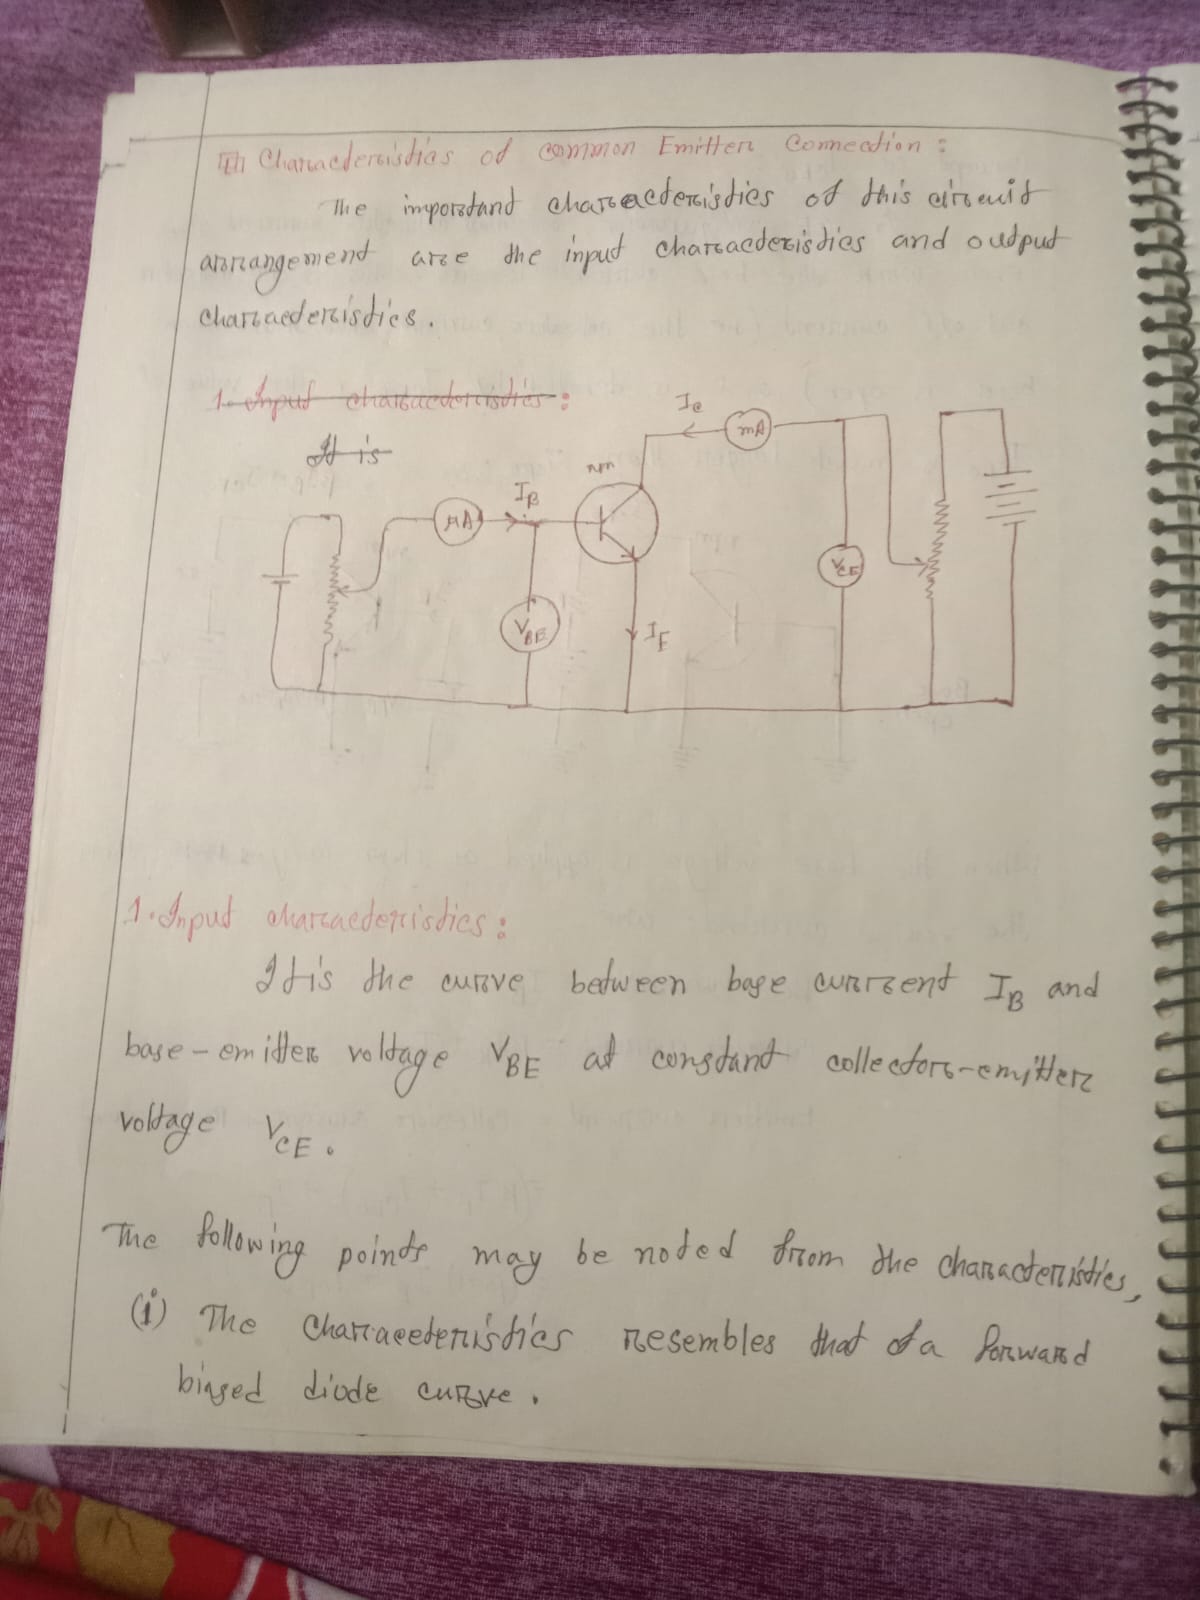 Characteristics of common Emitter Connection :
The important characteristics of this circuit
arrangement are the input characteristics and output
characteristics.
1. Input characteristics :
It is
Ic
mA
npn
IB
μA
VCE
VBE
IE
1. Input characteristics :
It is the curve between base current IB and
base-emitter voltage VBE at constant collector-emitter
voltage VCE.
The following points may be noted from the characteristics,
(i) The characeteristics resembles that of a forward
biased diode curve.